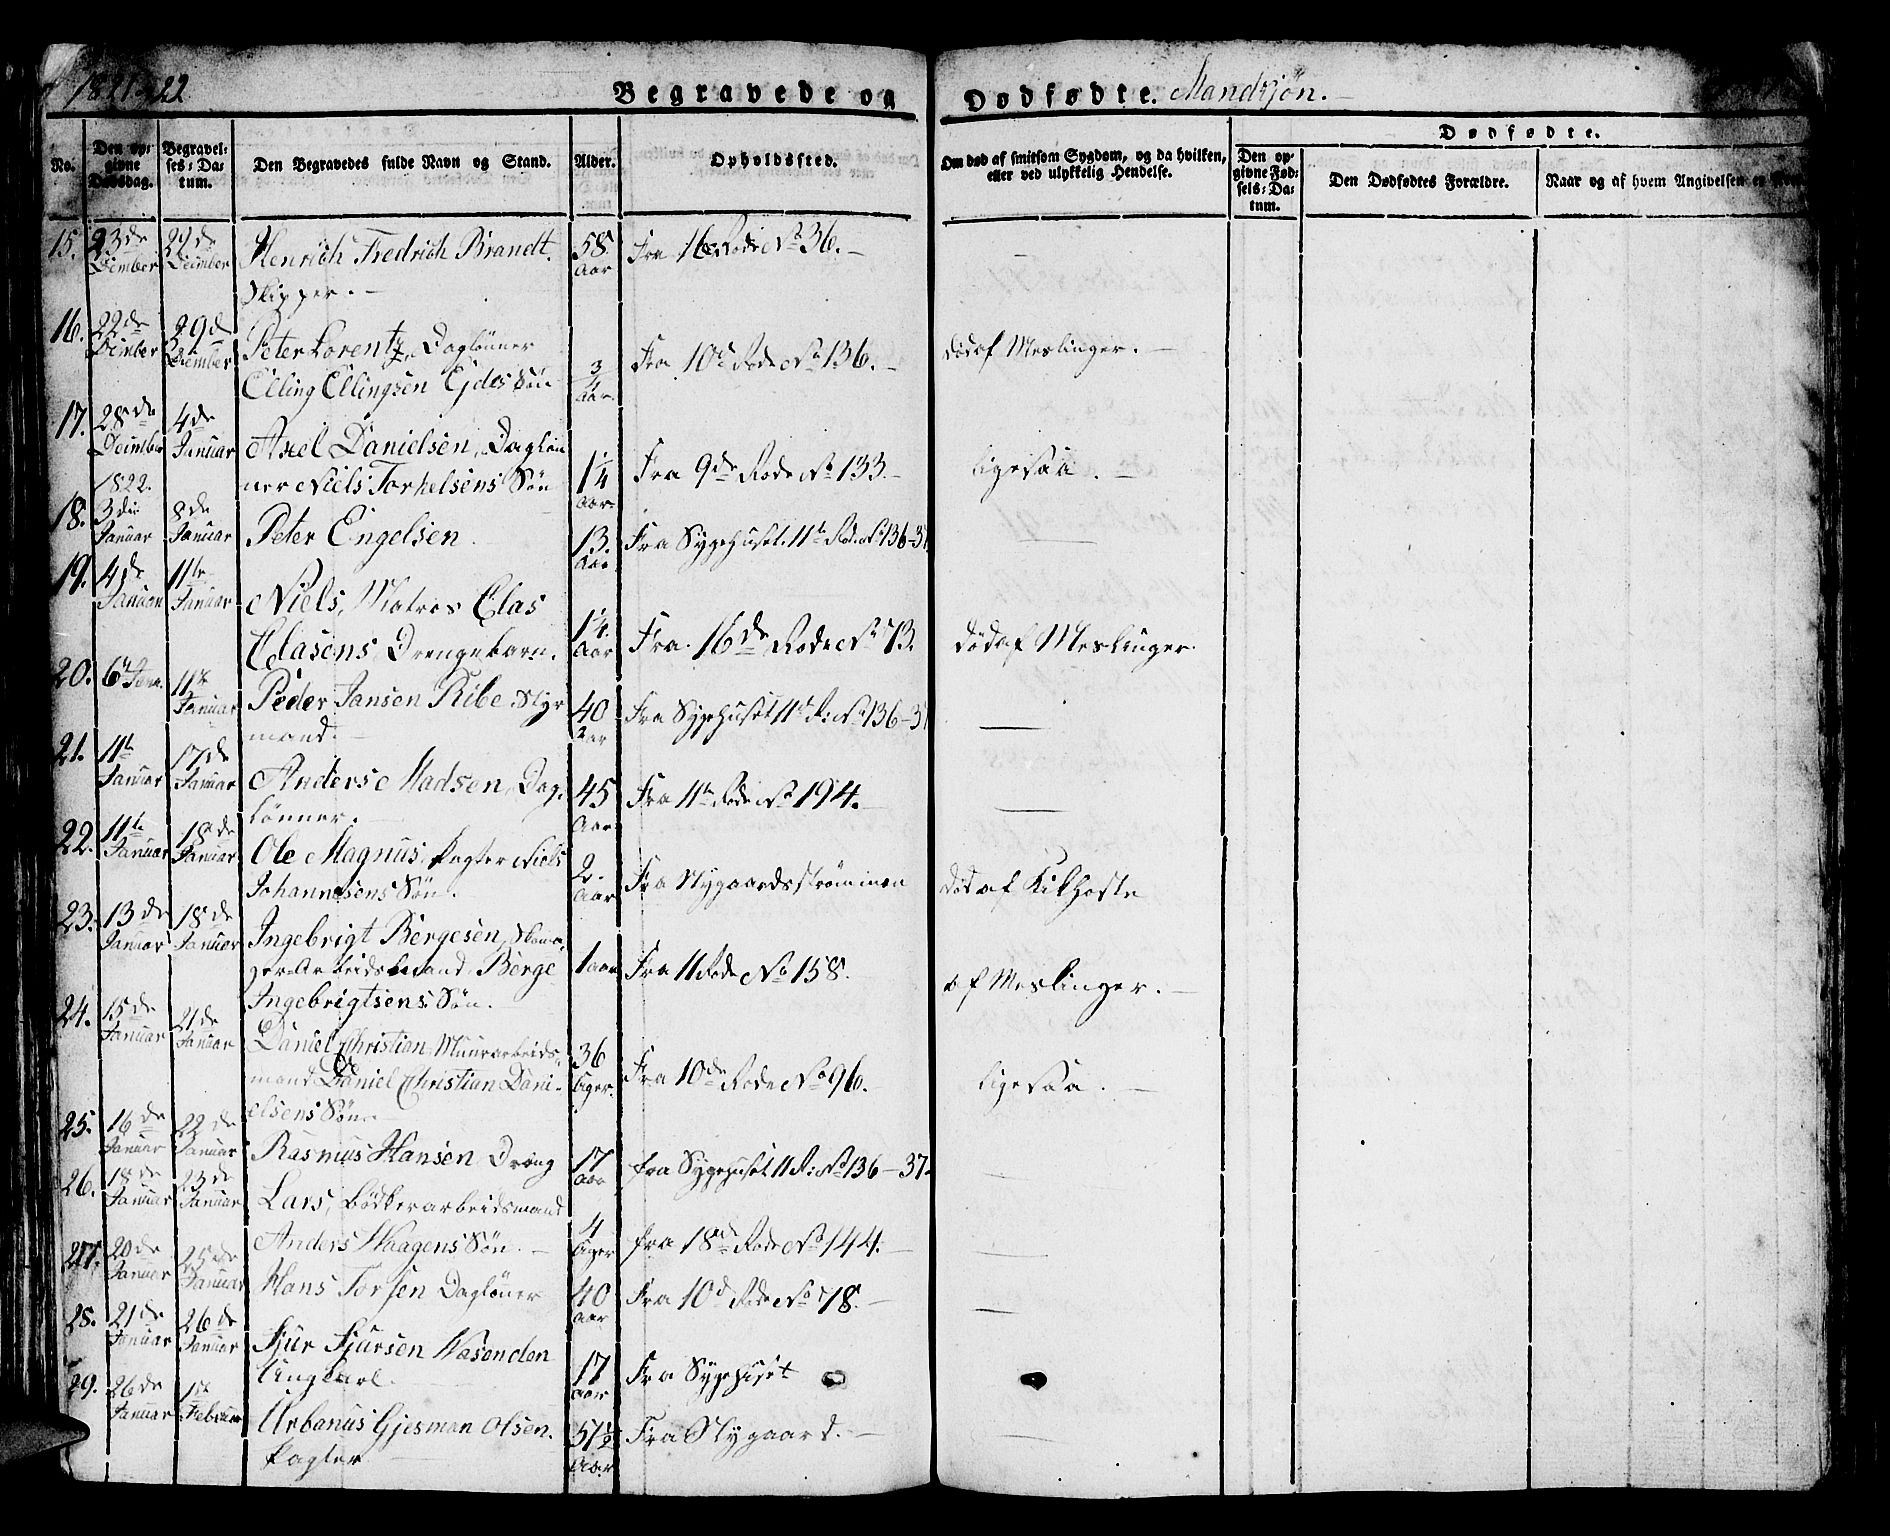 1821-22
Begravede og Dødfødte. Mandkjön.
No.
Den opgivne Dødsdag.
Begravelses-Datum.
Den Begravedes fulde Navn og Stand.
Alder.
Opholdssted.
Om død af smitsom Sygdom, og da hvilken, eller ved ulykkelig Hendelse.
Dødfødte.
Den opgivne Fødsels-Datum.
Den Dødfødtes Forældre.
Naar og af hvem Angivelsen er
15. 23de December 29de December Henrich Fredrich Brandt. 58 Aar Fra 16de Rode No 36. —
Skipper. —
16. 22de December 29de December Peter Lorentz, Daglönner 3/4 Aar Fra 10de Rode No 136. — död af Meslinger. —
Elling Ellingsen Ejdes Sön
17. 28de December 4de Januar Axel Danielsen, Daglön 1 1/4 Aar Fra 9de Rode No 133. — ligesaa. —
ner Niels Torkelsens Sön
1822.
18. 3die Januar 8de Januar Peter Engelsen 13. Aar Fra Sygehuset 11te Rode No 136-37 —
19. 4de Januar 11te Januar Niels, Matros Clas 1 1/4. Aar Fra 16de Rode No 73. död af Meslinger.
Clasens Drengebarn.
20. 6te Janu. 11te Januar Peder Jansen Ribe Styr 40 Aar Fra Sygehuset 11te R: No 136-37 —
mand. —
21. 11te Januar 17de Januar Anders Madsen, Dag. 45 Aar Fra 11te Rode No 194. — —
lönner. —
22. 11te Januar 18de Januar Ole Magnus, Pagter Niels 2. Aar Fra Nygaardsströmmen död af Kikhoste
Johannesens Sön.
23. 13de Januar 18de Januar Ingebrigt Bergesen, 1 aar Fra 11 Rode No 158. af Meslinger. —
Arbeidsmand Berge
Ingebrigtsens Sön.
24. 15de Januar 21de Januar Daniel Christian, Muurarbeids- 36 Uger. Fra 10de Rode No 96. ligesaa. —
mand Daniel Christian Dani-
elsens Sön.
25. 16de Januar 22de Januar Rasmus Hansen Dreng 17 Aar fra Sygehuset 11 R: No 136-37. —
26. 18de Januar 23de Januar Lars, Bödkerarbeidsmand 4 Uger fra 18de Rode No 144. — —
Anders Haagens Sön. —
27. 20de Januar 25de Januar Hans Torsen Daglönner 40 Aar Fra 10de Rode No 78. — —
28. 21de Januar 26de Januar Sjur Sjursen Nasenden 17 Aar Fra Sygehuset
Ungkarl. —
29. 26de Januar 1ste Februar Urbanus Gjesman Olsen. 57 1/2 Aar Fra Nygaard. — —
Pagter